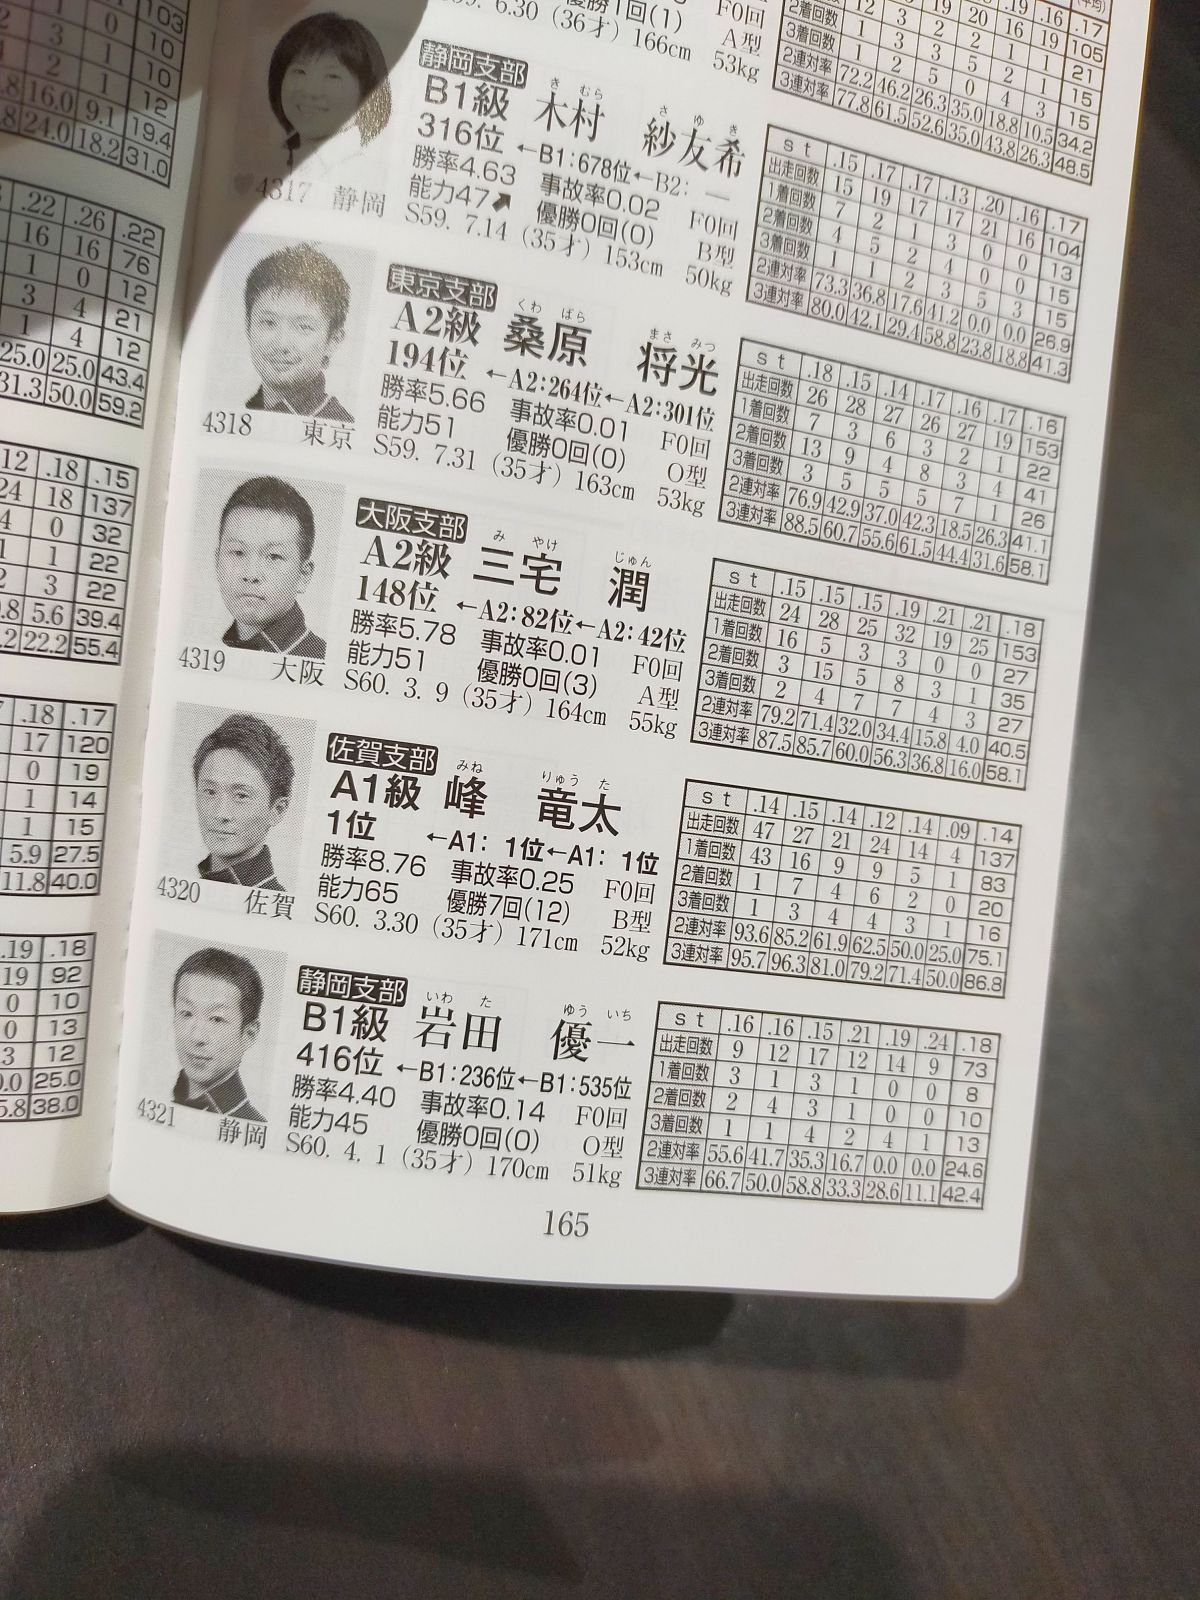 優勝1回(1) A型
6.30 (36才) 166cm 53kg
2着回数 12 3 2 2 1 1 21
3着回数 1 2 5 0 4 3 15
2連対率 72.2 46.2 26.3 35.0 18.8 10.5 34.2
3連対率 77.8 61.5 52.6 35.0 43.8 26.3 48.5
静岡支部
きむら さゆき
B1級 木村 紗友希
316位 ←B1:678位←B2: ―
勝率4.63 事故率0.02 F0回
能力47 優勝0回(0) B型
S59. 7.14 (35才) 153cm 50kg
4317 静岡
st .15 .17 .17 .13 .20 .16 .17
出走回数 15 19 17 17 21 16 104
1着回数 7 2 1 3 0 0 13
2着回数 4 5 2 4 0 0 15
3着回数 1 1 2 3 5 3 15
2連対率 73.3 36.8 17.6 41.2 0.0 0.0 26.9
3連対率 80.0 42.1 29.4 58.8 23.8 18.8 41.3
東京支部
くわばら まさみつ
A2級 桑原 将光
194位 ←A2:264位←A2:301位
勝率5.66 事故率0.01 F0回
能力51 優勝0回(0) O型
S59. 7.31 (35才) 163cm 53kg
4318 東京
st .18 .15 .14 .17 .16 .17 .16
出走回数 26 28 27 26 27 19 153
1着回数 7 3 6 3 2 1 22
2着回数 13 9 4 8 3 4 41
3着回数 3 5 5 5 7 1 26
2連対率 76.9 42.9 37.0 42.3 18.5 26.3 41.1
3連対率 88.5 60.7 55.6 61.5 44.4 31.6 58.1
大阪支部
みやけ じゅん
A2級 三宅 潤
148位 ←A2:82位←A2:42位
勝率5.78 事故率0.01 F0回
能力51 優勝0回(3) A型
S60. 3. 9 (35才) 164cm 55kg
4319 大阪
st .15 .15 .15 .19 .21 .21 .18
出走回数 24 28 25 32 19 25 153
1着回数 16 5 3 3 0 0 27
2着回数 3 15 5 8 3 1 35
3着回数 2 4 7 7 4 3 27
2連対率 79.2 71.4 32.0 34.4 15.8 4.0 40.5
3連対率 87.5 85.7 60.0 56.3 36.8 16.0 58.1
佐賀支部
みね りゅうた
A1級 峰 竜太
1位 ←A1: 1位←A1: 1位
勝率8.76 事故率0.25 F0回
能力65 優勝7回(12) B型
S60. 3.30 (35才) 171cm 52kg
4320 佐賀
st .14 .15 .14 .12 .14 .09 .14
出走回数 47 27 21 24 14 4 137
1着回数 43 16 9 9 5 1 83
2着回数 1 7 4 6 2 0 20
3着回数 1 3 4 4 3 1 16
2連対率 93.6 85.2 61.9 62.5 50.0 25.0 75.1
3連対率 95.7 96.3 81.0 79.2 71.4 50.0 86.8
静岡支部
いわた ゆういち
B1級 岩田 優一
416位 ←B1:236位←B1:535位
勝率4.40 事故率0.14 F0回
能力45 優勝0回(0) O型
S60. 4. 1 (35才) 170cm 51kg
4321 静岡
st .16 .16 .15 .21 .19 .24 .18
出走回数 9 12 17 12 14 9 73
1着回数 3 1 3 1 0 0 8
2着回数 2 4 3 1 0 0 10
3着回数 1 1 4 2 4 1 13
2連対率 55.6 41.7 35.3 16.7 0.0 0.0 24.6
3連対率 66.7 50.0 58.8 33.3 28.6 11.1 42.4
165